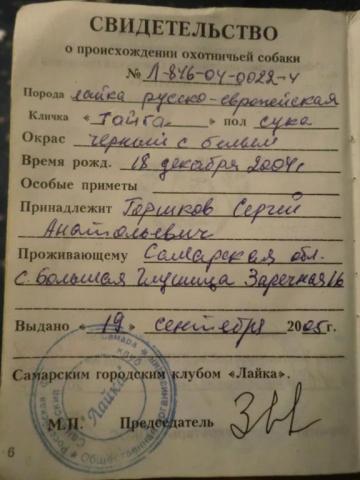 СВИДЕТЕЛЬСТВО
о происхождении охотничьей собаки
№ Л-846-04-0022-4
Порода лайка русско-европейская
Кличка « Тайга » пол сука
Окрас черный с белым
Время рожд. 18 декабря 2004г
Особые приметы
Принадлежит Горшков Сергей
Анатольевич
Проживающему Самарская обл.
с. Большая Глушица Заречная 16
Выдано « 19 » сентября 2005 г.
Самарским городским клубом «Лайка».
М.П. Председатель
Самара
клуб
Лайка
6